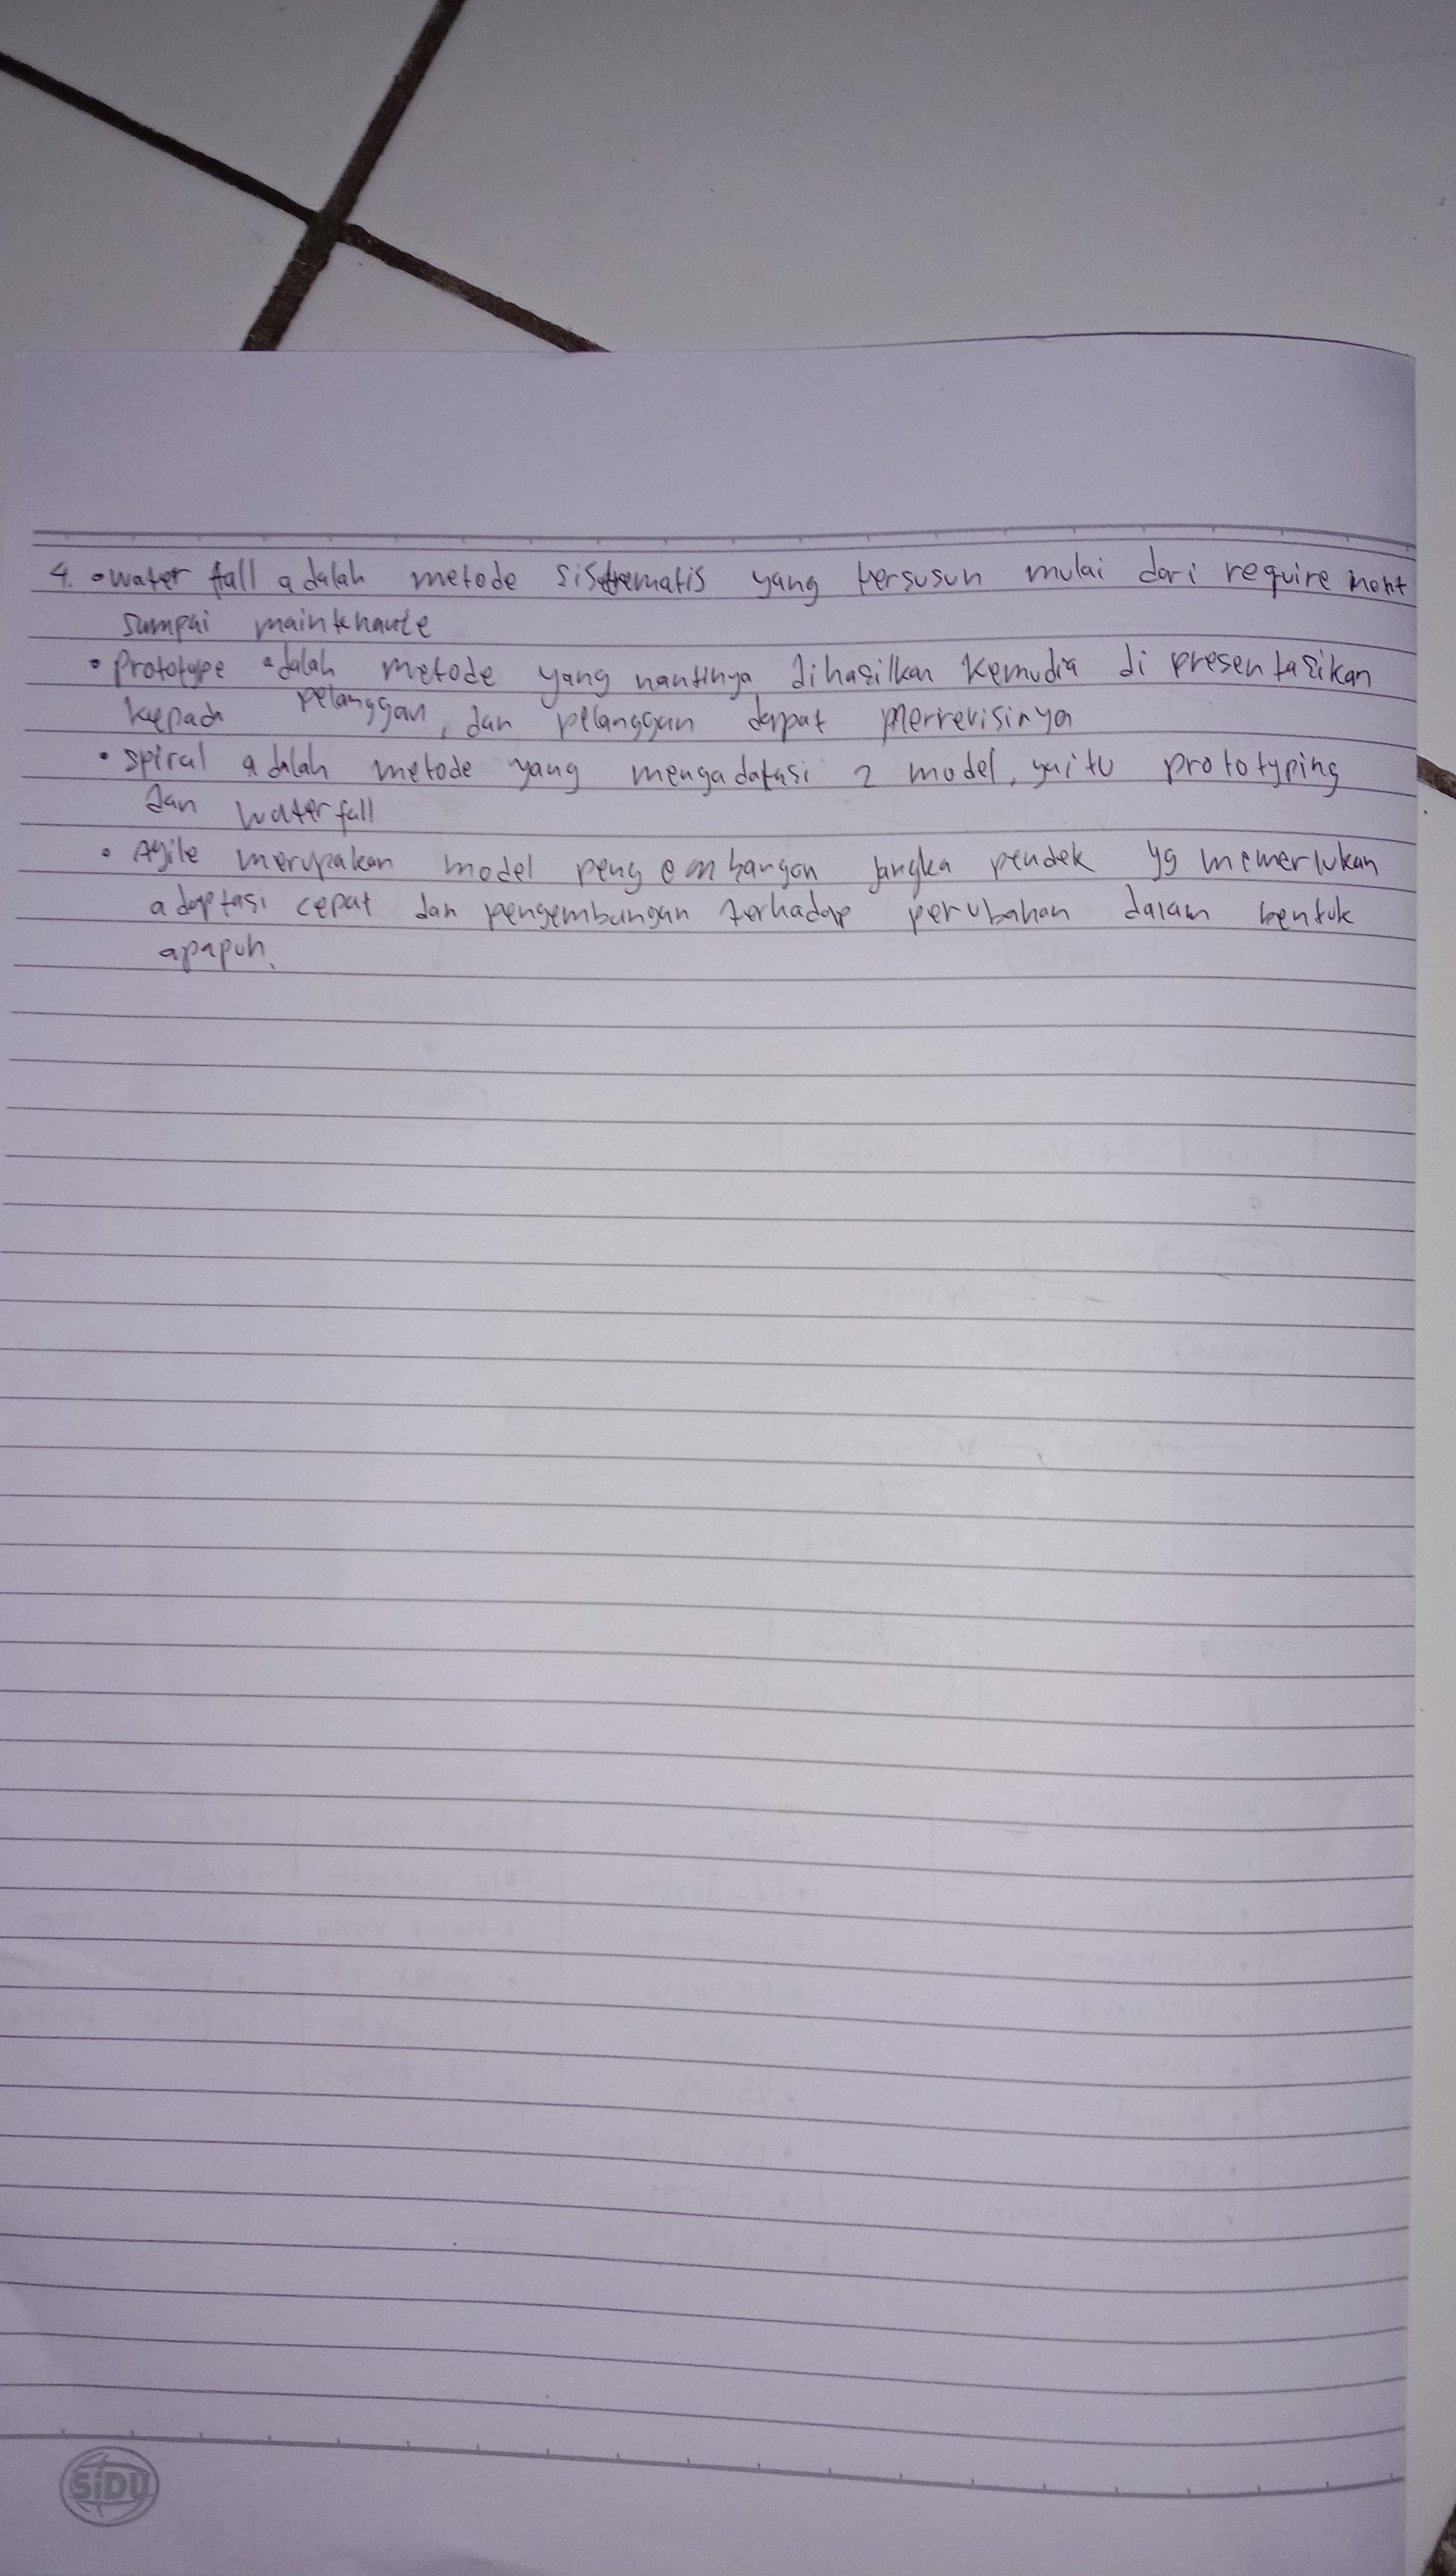 4. • water fall adalah metode sistematis yang tersusun mulai dari requirement
sampai maintenance
• Prototype adalah metode yang nantinya dihasilkan kemudia di presentasikan
kepada pelanggan, dan pelanggan dapat merrevisinya
• spiral adalah metode yang mengadatasi 2 model, yaitu prototyping
dan waterfall
• Agile merupakan model pengembangan jangka pendek yg memerlukan
adaptasi cepat dan pengembangan terhadap perubahan dalam bentuk
apapun.
SiDU